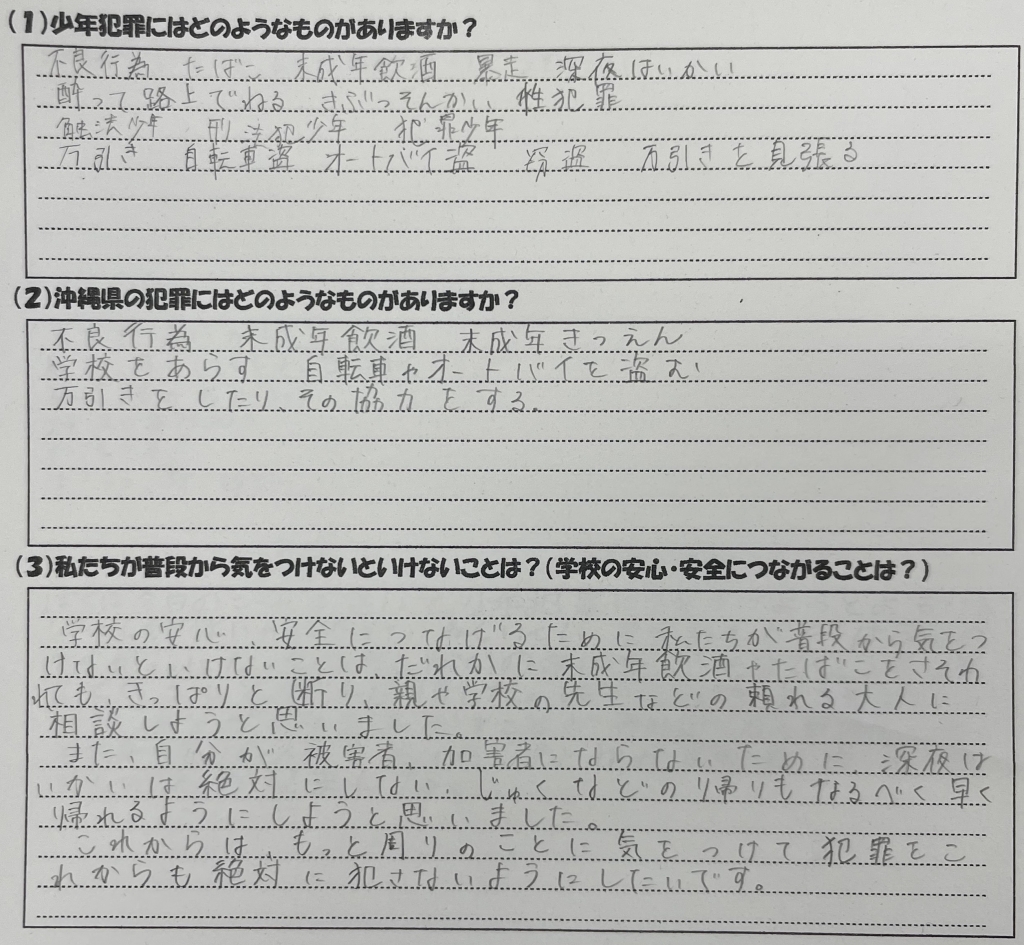 (1)少年犯罪にはどのようなものがありますか？
不良行為 たばこ 未成年飲酒 暴走 深夜はいかい
酔って路上でねる きぶつそんかい 性犯罪
触法少年 刑法犯少年 犯罪少年
万引き 自転車盗 オートバイ盗 窃盗 万引きを見張る
(2)沖縄県の犯罪にはどのようなものがありますか？
不良行為 未成年飲酒 未成年きつえん
学校をあらす 自転車やオートバイを盗む
万引きをしたり、その協力をする。
(3)私たちが普段から気をつけないといけないことは？(学校の安心・安全につながることは？)
学校の安心、安全につなげるために私たちが普段から気をつ
けないといけないことは、だれかに未成年飲酒やたばこをさそわ
れても、きっぱりと断り、親や学校の先生などの頼れる大人に
相談しようと思いました。
また、自分が被害者、加害者にならないために、深夜は
いかいは絶対にしない、じゅくなどの帰りもなるべく早く
帰れるようにしようと思いました。
これからは、もっと周りのことに気をつけて犯罪をこ
れからも絶対に犯さないようにしたいです。